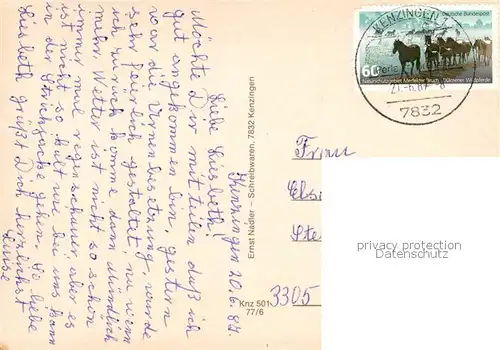 Kenzingen 20.6.87.
Liebe Liesbeth!
Möchte Dir mitteilen daß ich
gut angekommen bin, gestern
war die Urnenbeisetzung, wurde
sehr feierlich gestaltet, nu wenn
ich zurück komme dann mündlich
mehr, Wetter ist nicht so schön
immer mal regenschauer, aber es
ist nicht so kalt wie bei uns kann
in der Strickjacke gehen. So liebe
Liesbeth grüßt Dich herzlichst
Luise
Ernst Nadler – Schreibwaren, 7832 Kenzingen
Knz 501
77/6
KENZINGEN
Deutsche Bundespost
60
Perle
Naturschutzgebiet Merfelder Bruch · Dülmener Wildpferde
21.-6.87-8
7832
Frau
Els
Ste
3305
privacy protection
Datenschutz